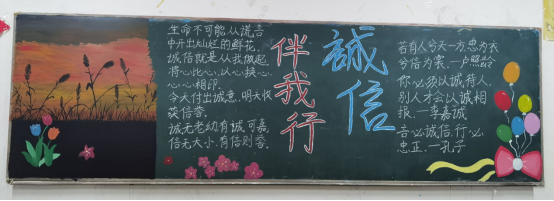 生命不可能从谎言
中开出灿烂的鲜花.
诚信就是从我做起
将心比心,以心换心
心心相印.
今天付出诚意,明天收
获信誉.
诚无老幼有诚可嘉,
信无大小,有信则容.
伴我行
誠信
若有人兮天一方,忠为衣
兮信为裳.—卢照龄
你必须以诚待人,
别人才会以诚相
报.—李嘉诚
言必诚信,行必
忠正.—孔子